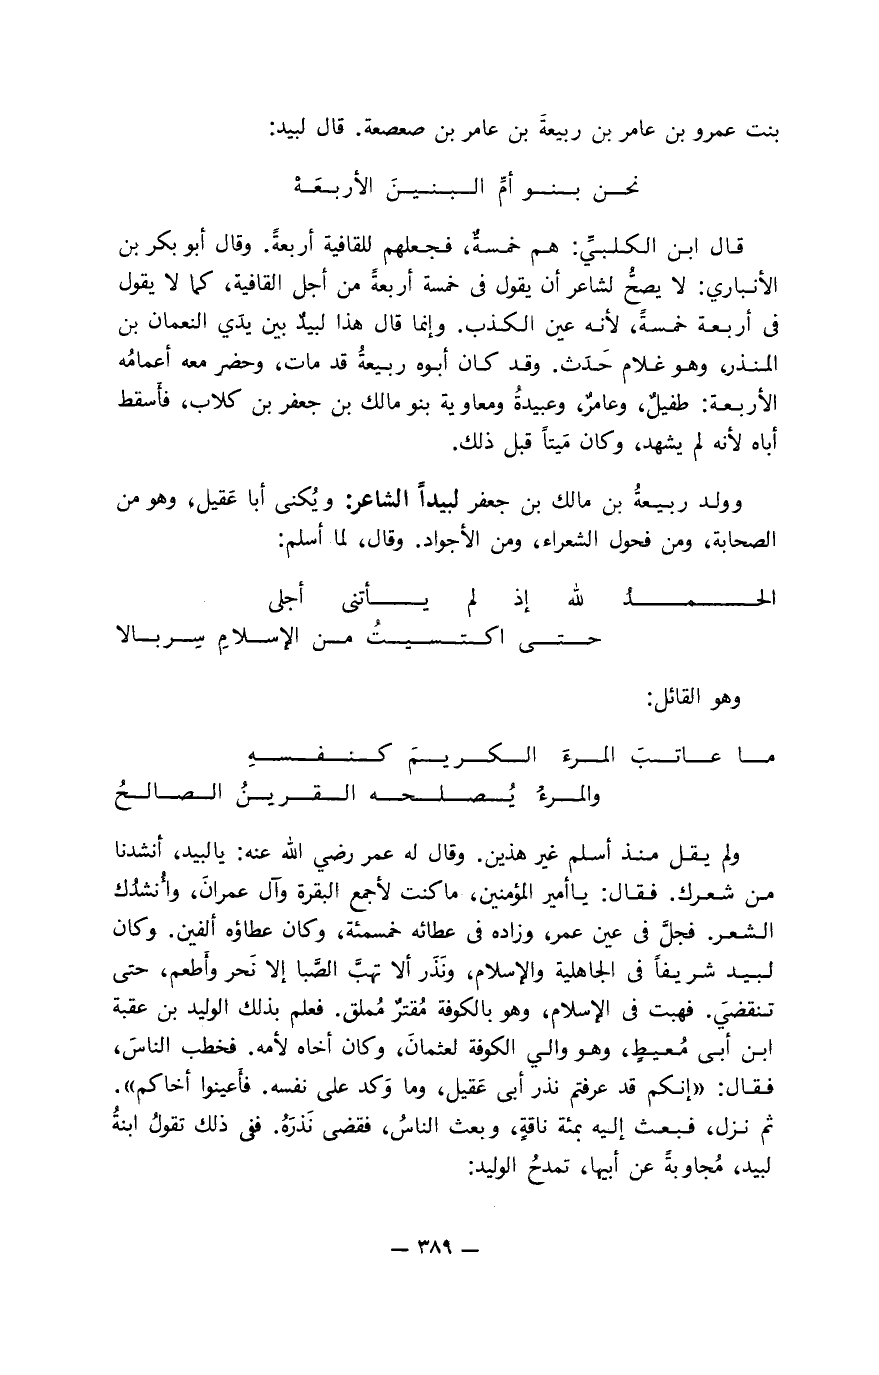 بنت عمرو بن عامر بن ربيعةَ بن عامر بن صعصعة. قال لبيد:
نحن بنو أمِّ البنينَ الأربعَهْ
قال ابن الكلبيِّ: هم خمسةٌ، فجعلهم للقافية أربعةً. وقال أبو بكر بن
الأنباري: لا يصحُّ لشاعر أن يقول فى خمسة أربعةً من أجل القافية، كما لا يقول
فى أربعة خمسةً، لأنه عين الكذب. وإنما قال هذا لبيدٌ بين يدَي النعمان بن
المنذر، وهو غلام حَدَث. وقد كان أبوه ربيعةُ قد مات، وحضر معه أعمامُه
الأربعة: طفيلٌ، وعامرٌ، وعبيدةُ ومعاوية بنو مالك بن جعفر بن كلاب، فأسقط
أباه لأنه لم يشهد، وكان مَيتاً قبل ذلك.
وولد ربيعةُ بن مالك بن جعفر لبيداً الشاعر: ويُكنى أبا عَقيل، وهو من
الصحابة، ومن فحول الشعراء، ومن الأجواد. وقال، لما أسلم:
الحمدُ لله إذ لم يأتنى أجلى
حتى اكتسيتُ من الإسلامِ سِربالا
وهو القائل:
ما عاتبَ المرءَ الكريمَ كنفسهِ
والمرءُ يُصلحه القرينُ الصالحُ
ولم يقل منذ أسلم غير هذين. وقال له عمر رضي الله عنه: يالبيد، أنشدنا
من شعرك. فقال: ياأمير المؤمنين، ماكنت لأجمع البقرة وآل عمرانَ، وأُنشدُك
الشعر. فجلَّ فى عين عمر، وزاده فى عطائه خمسمئة، وكان عطاؤه ألفين. وكان
لبيد شريفاً فى الجاهلية والإسلام، ونَذَر ألا تهبَّ الصَّبا إلا نَحر وأطعم، حتى
تنقضيَ. فهبت فى الإسلام، وهو بالكوفة مُقترٌ مُملق. فعلم بذلك الوليد بن عقبة
ابن أبى مُعيطٍ، وهو والي الكوفة لعثمانَ، وكان أخاه لأمه. فخطب الناسَ،
فقال: «إنكم قد عرفتم نذر أبى عَقيل، وما وَكد على نفسه. فأعينوا أخاكم».
ثم نزل، فبعث إليه بمئة ناقةٍ، وبعث الناسُ، فقضى نَذرَهُ. ففى ذلك تقولُ ابنةُ
لبيد، مُجاوبةً عن أبيها، تمدحُ الوليد:
— ٣٨٩ —